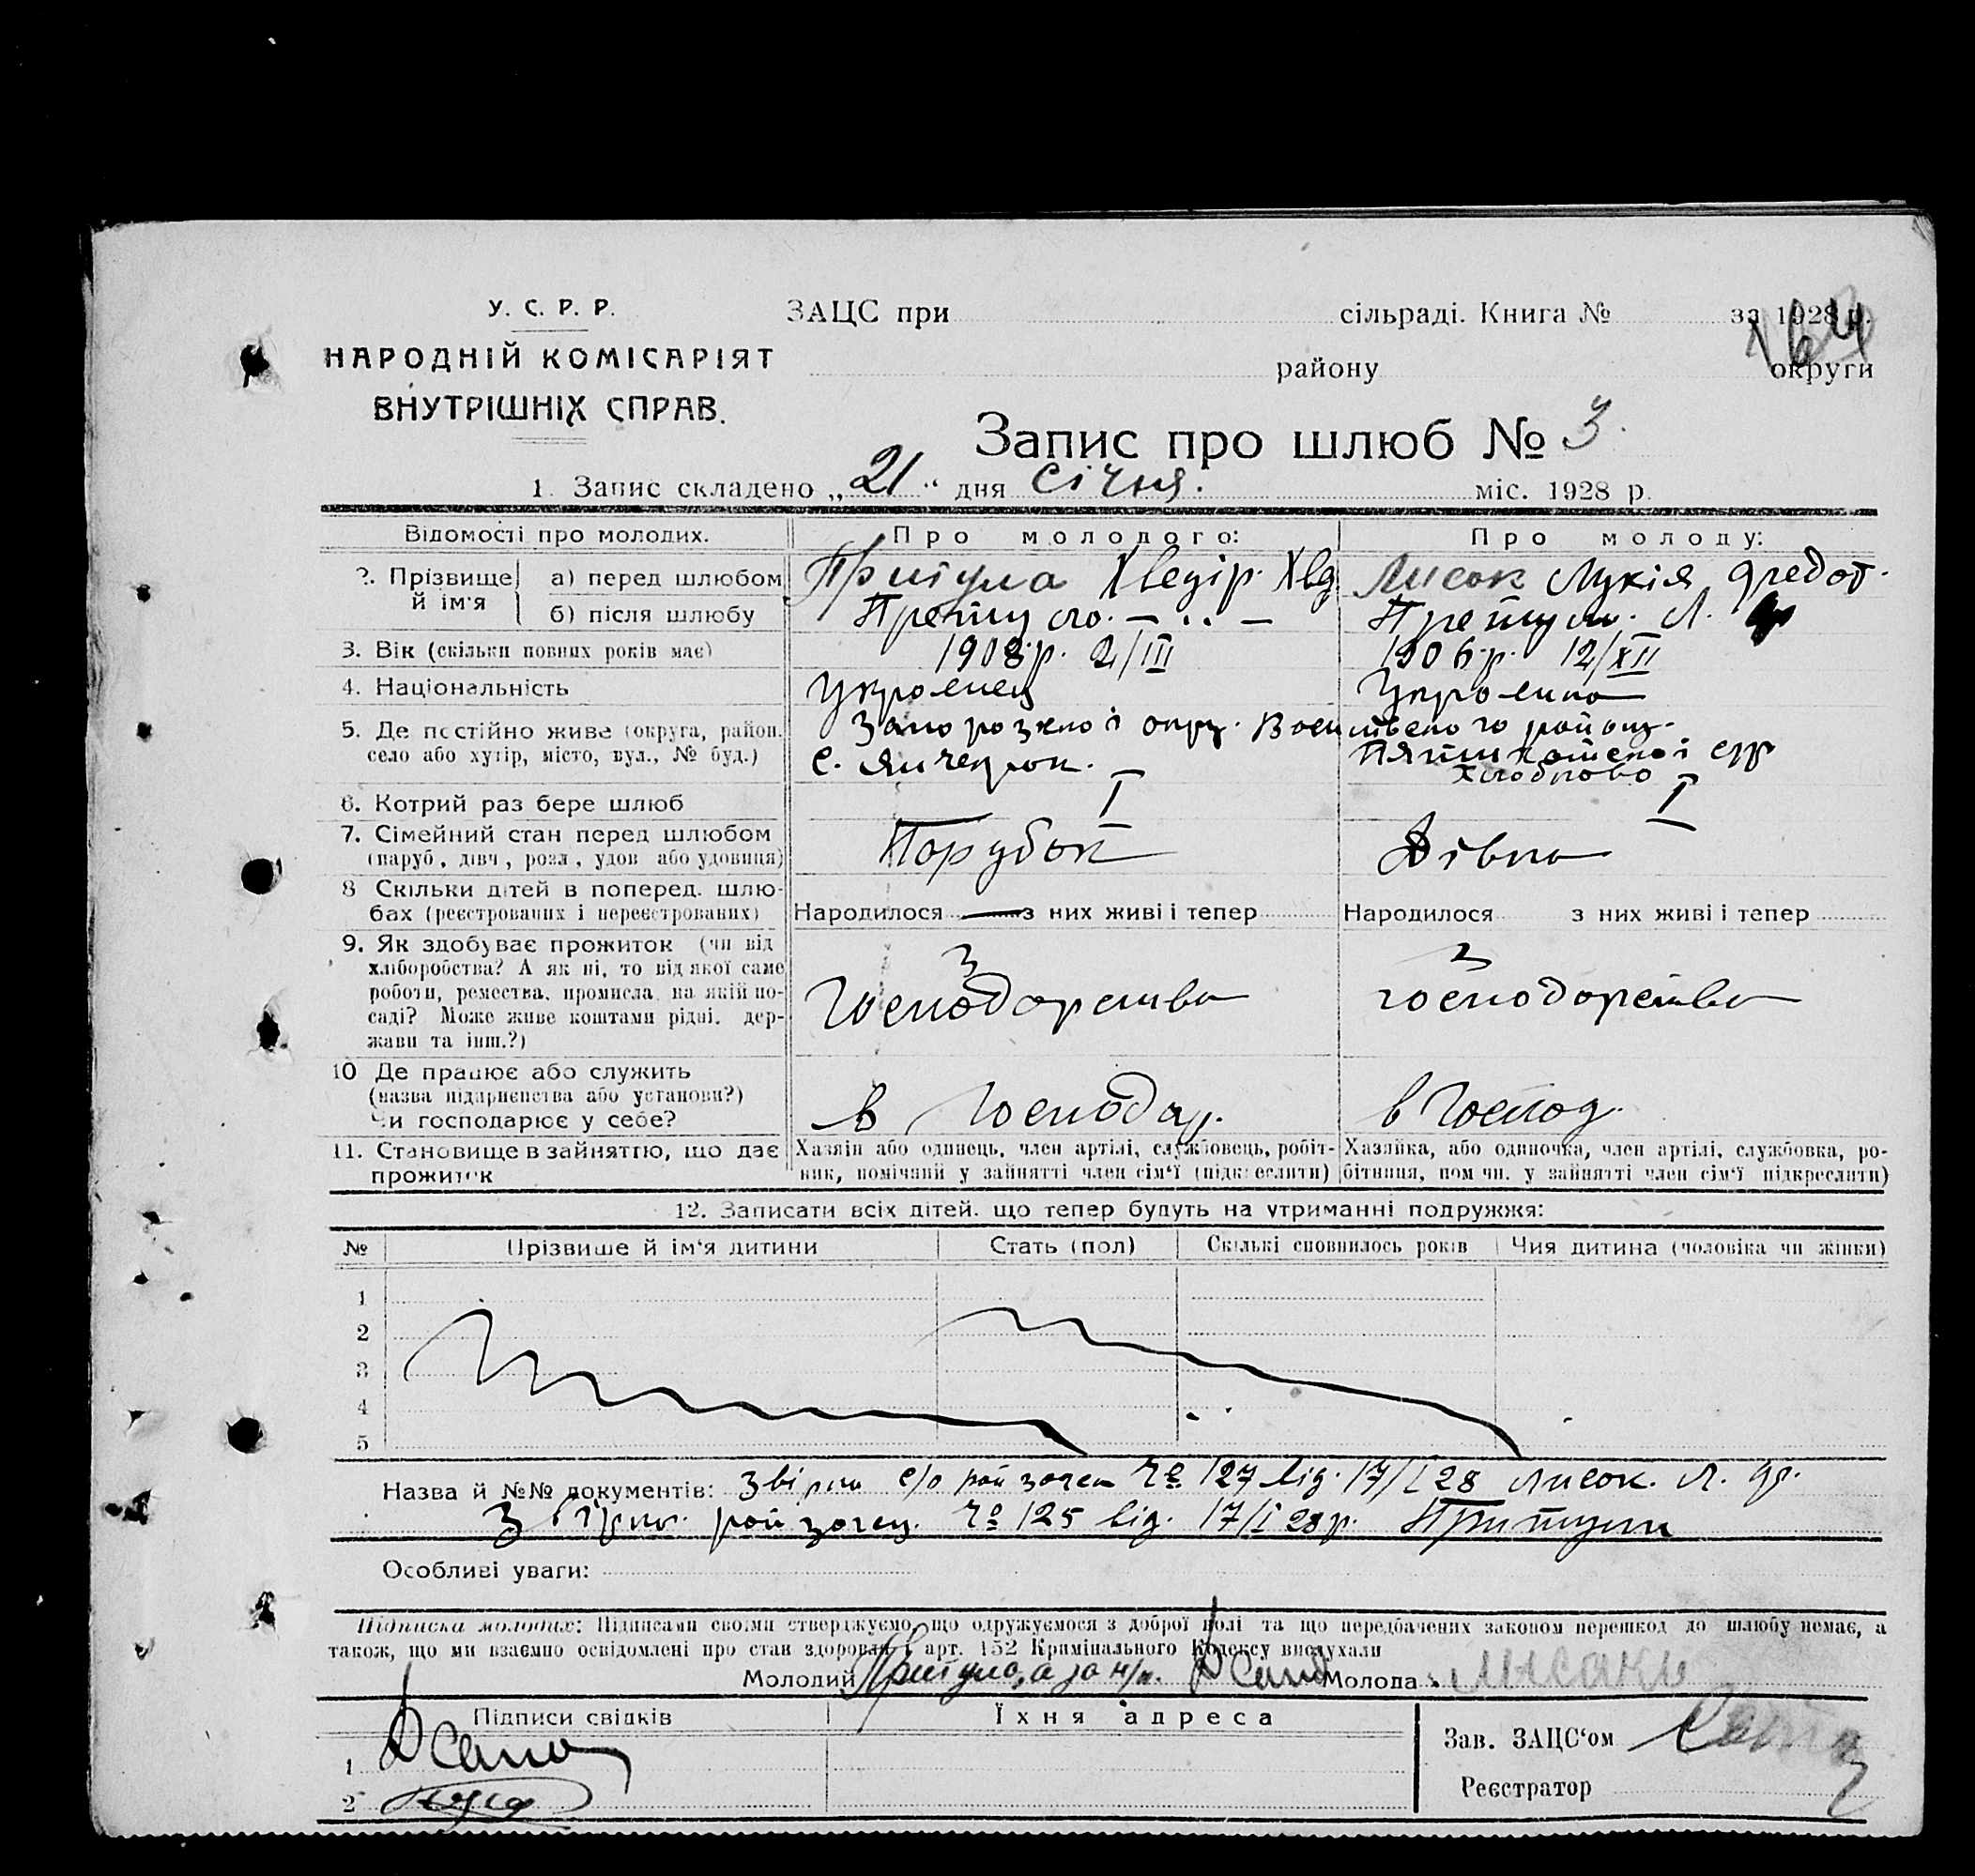 У. С. Р. Р.
НАРОДНІЙ КОМІСАРІЯТ
ВНУТРІШНІХ СПРАВ.
ЗАЦС при сільраді. Книга № за 1928 р.
району округи
164
Запис про шлюб № 3.
1. Запис складено „21" дня січня. міс. 1928 р.
Відомості про молодих. Про молодого: Про молоду:
2. Прізвище й ім'я а) перед шлюбом Притула Хведір. Хвд. Лисак Лукія Федот.
б) після шлюбу Притула. — .. — Притула. Л.
3. Вік (скільки повних років має) 1908 р. 2/III 1906 р. 12/XII
4. Національність Українец Українка
5. Де постійно живе (округа, район, Запорозкої окру. району.
село або хутір, місто, вул., № буд.) с. Янчекрак. с/р
6. Котрий раз бере шлюб I I
7. Сімейний стан перед шлюбом Парубок Дівка
(паруб., дівч., розл., удов. або удовиця)
8 Скільки дітей в поперед. шлю-
бах (реєстрованих і нереєстрованих) Народилося — з них живі і тепер Народилося з них живі і тепер
9. Як здобуває прожиток (чи від З З
хліборобства? А як ні, то від якої саме
роботи, ремества, промисла, на якій по- господарства господарства
саді? Може живе коштами рідні, дер-
жави та інш.?)
10 Де працює або служить
(назва підприємства або установи?)
Чи господарює у себе? в господар. в господ.
11. Становище в зайняттю, що дає Хазяін або одинець, член артілі, службовець, робіт- Хазяйка, або одиночка, член артілі, службовка, ро-
прожиток ник, помічний у зайнятті член сім'ї (підкреслити) бітниця, пом чн. у зайнятті член сім'ї підкреслити)
12. Записати всіх дітей, що тепер будуть на утриманні подружжя:
№ Прізвище й ім'я дитини Стать (пол) Скількі сповнилось років Чия дитина (чоловіка чи жінки)
1
2
3
4
5
Назва й №№ документів: № 127 від. 17/I 28 Лисак. Л. Ф.
№ 125 від. 17/I 28 р. Притули
Особливі уваги:
Підписка молодих: Підписами своїми стверджуємо, що одружуємося з доброї волі та що передбачених законом перешкод до шлюбу немає, а
також, що ми взаємно освідомлені про стан здоровля й арт. 152 Кримінального Кодексу вислухали
Молодий Притула, а за н/п. Молода: Лисак
Підписи свідків Їхня адреса Зав. ЗАЦС'ом
1
Реєстратор
2